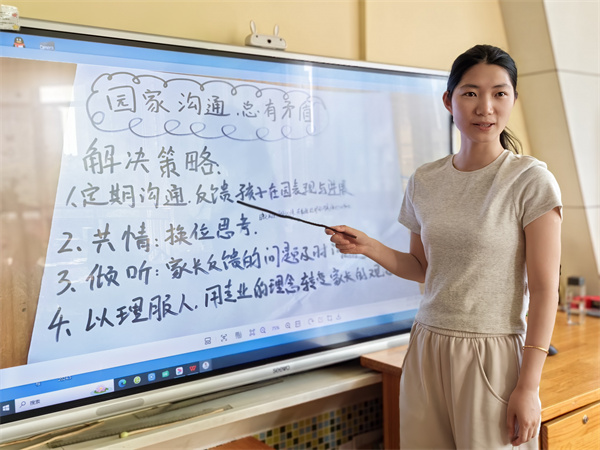 园家沟通.总有矛盾
解决策略
1.定期沟通.反馈孩子在园表现与进展
2.共情:换位思考.
3.倾听:家长反馈的问题及时
4.以理服人.用专业的理念转变家长的观
搜索